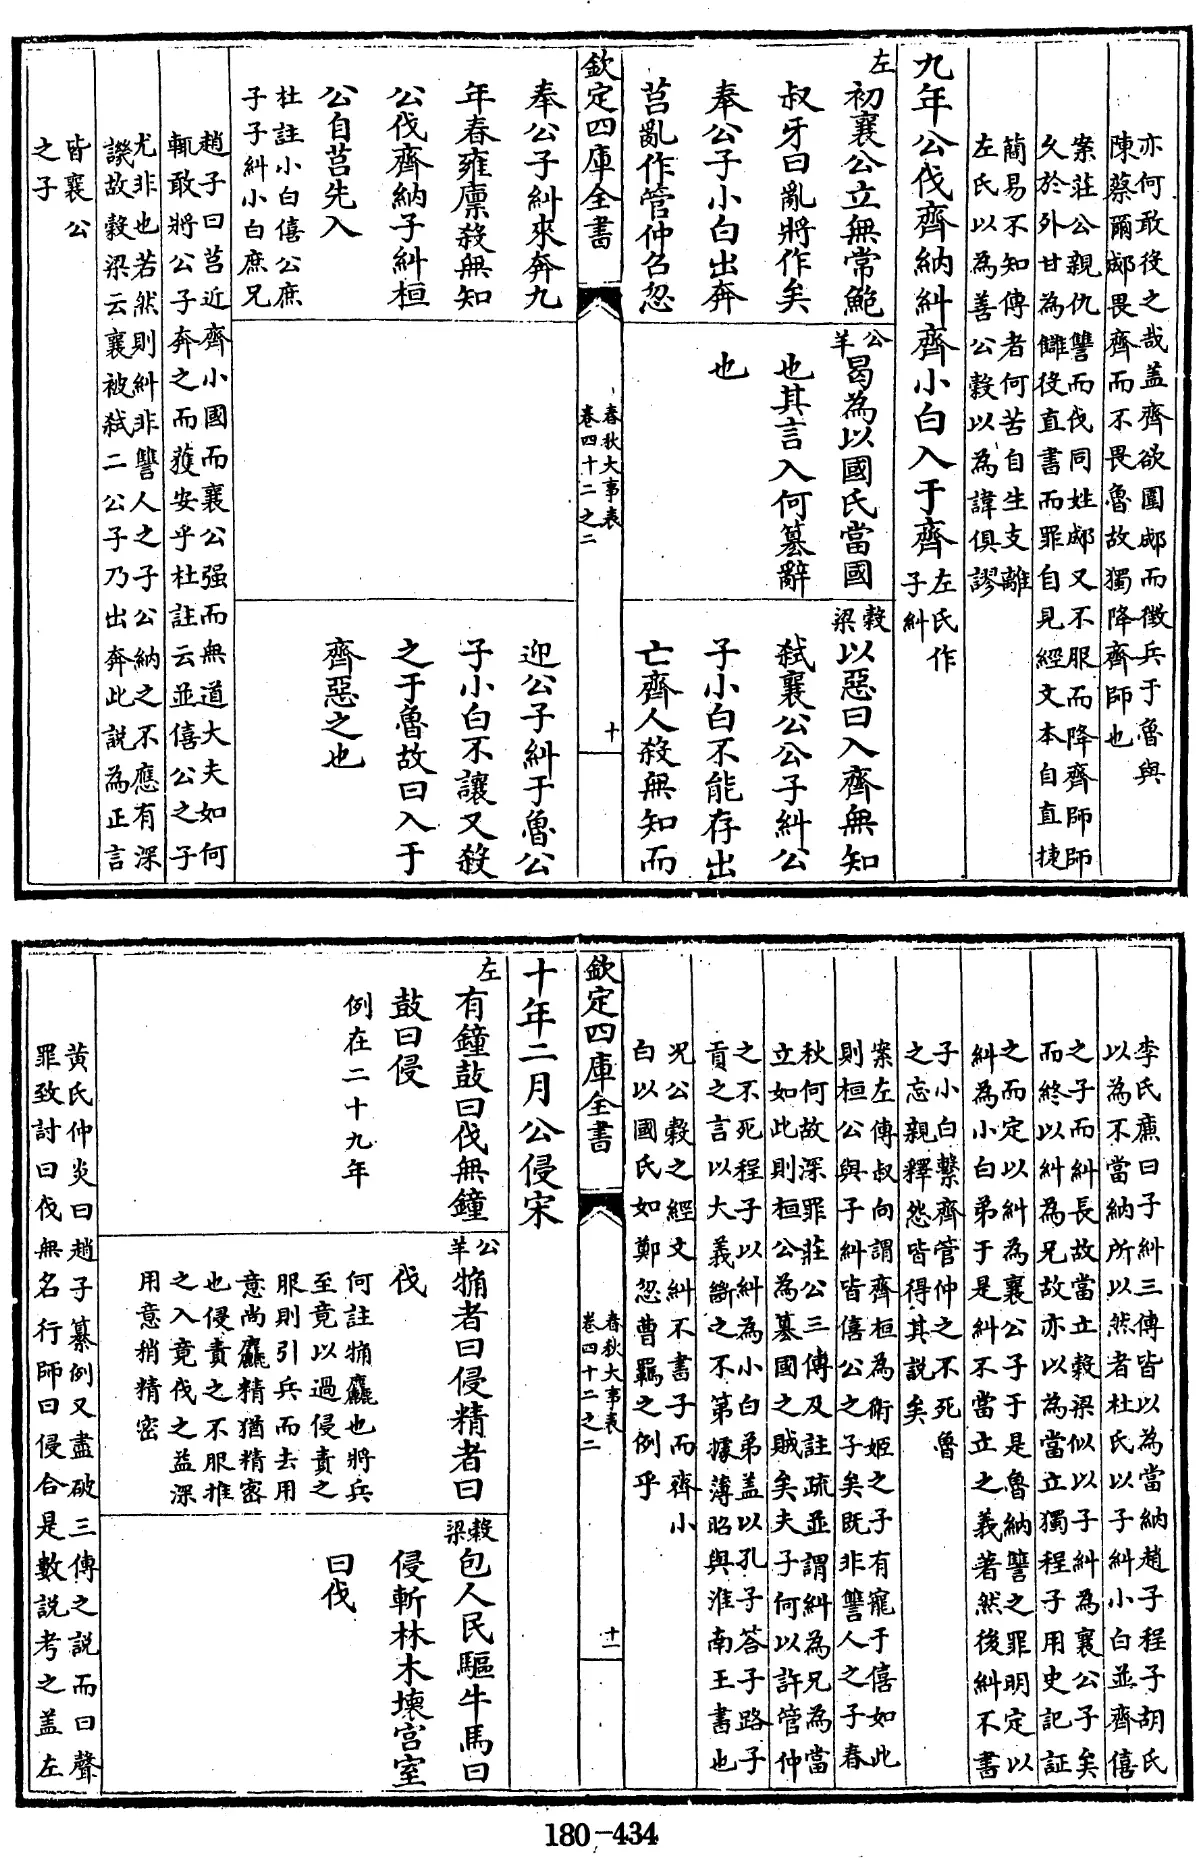 亦何敢後之哉蓋齊欲圍郕而徵兵于魯與
陳蔡爾郕畏齊而不畏魯故獨降齊師也
案莊公親仇讐而伐同姓郕又不服而降齊師師
久於外甘為讎役直書而罪自見經文本自直捷
簡易不知傳者何苦自生支離
左氏以為善公穀以為諱俱謬
九年公伐齊納糾齊小白入于齊
左氏作
子糾
左
初襄公立無常鮑
叔牙曰亂將作矣
奉公子小白出奔
莒亂作管仲召忽
公羊
曷為以國氏當國
也其言入何篡辭
也
穀梁
以惡曰入齊無知
弒襄公公子糾公
子小白不能存出
亡齊人殺無知而
欽定四庫全書
春秋大事表
卷四十二之二
十
奉公子糾來奔九
年春雍廩殺無知
公伐齊納子糾桓
公自莒先入
杜註小白僖公庶
子子糾小白庶兄
迎公子糾于魯公
子小白不讓又殺
之于魯故曰入于
齊惡之也
趙子曰莒近齊小國而襄公强而無道大夫如何
輒敢將公子奔之而獲安乎杜註云並僖公之子
尤非也若然則糾非讐人之子公納之不應有深
譏故穀梁云襄被弒二公子乃出奔此說為正言
皆襄公
之子
李氏廉曰子糾三傳皆以為當納趙子程子胡氏
以為不當納所以然者杜氏以子糾小白並齊僖
之子而糾長故當立穀梁似以子糾為襄公子矣
而終以糾為兄故亦以為當立獨程子用史記証
之而定以糾為襄公子于是魯納讐之罪明定以
糾為小白弟于是糾不當立之義著然後糾不書
子小白繫齊管仲之不死魯
之忘親釋怨皆得其説矣
案左傳叔向謂齊桓為衛姬之子有寵于僖如此
則桓公與子糾皆僖公之子矣既非讐人之子春
秋何故深罪莊公三傳及註疏並謂糾為兄為當
立如此則桓公為篡國之賊矣夫子何以許管仲
之不死程子以糾為小白弟蓋以孔子答子路子
貢之言以大義斷之不第據薄昭與淮南王書也
况公穀之經文糾不書子而齊小
白以國氏如鄭忽曹羈之例乎
欽定四庫全書
春秋大事表
卷四十二之二
十一
十年二月公侵宋
左
有鐘鼓曰伐無鐘
鼓曰侵
例在二十九年
公羊
觕者曰侵精者曰
伐
何註觕麤也將兵
至竟以過侵責之
服則引兵而去用
意尚麤精猶精密
也侵責之不服推
之入竟伐之益深
用意稍精密
穀梁
包人民驅牛馬曰
侵斬林木壞宫室
曰伐
黄氏仲炎曰趙子纂例又盡破三傳之説而曰聲
罪致討曰伐無名行師曰侵合是數説考之蓋左
180-434